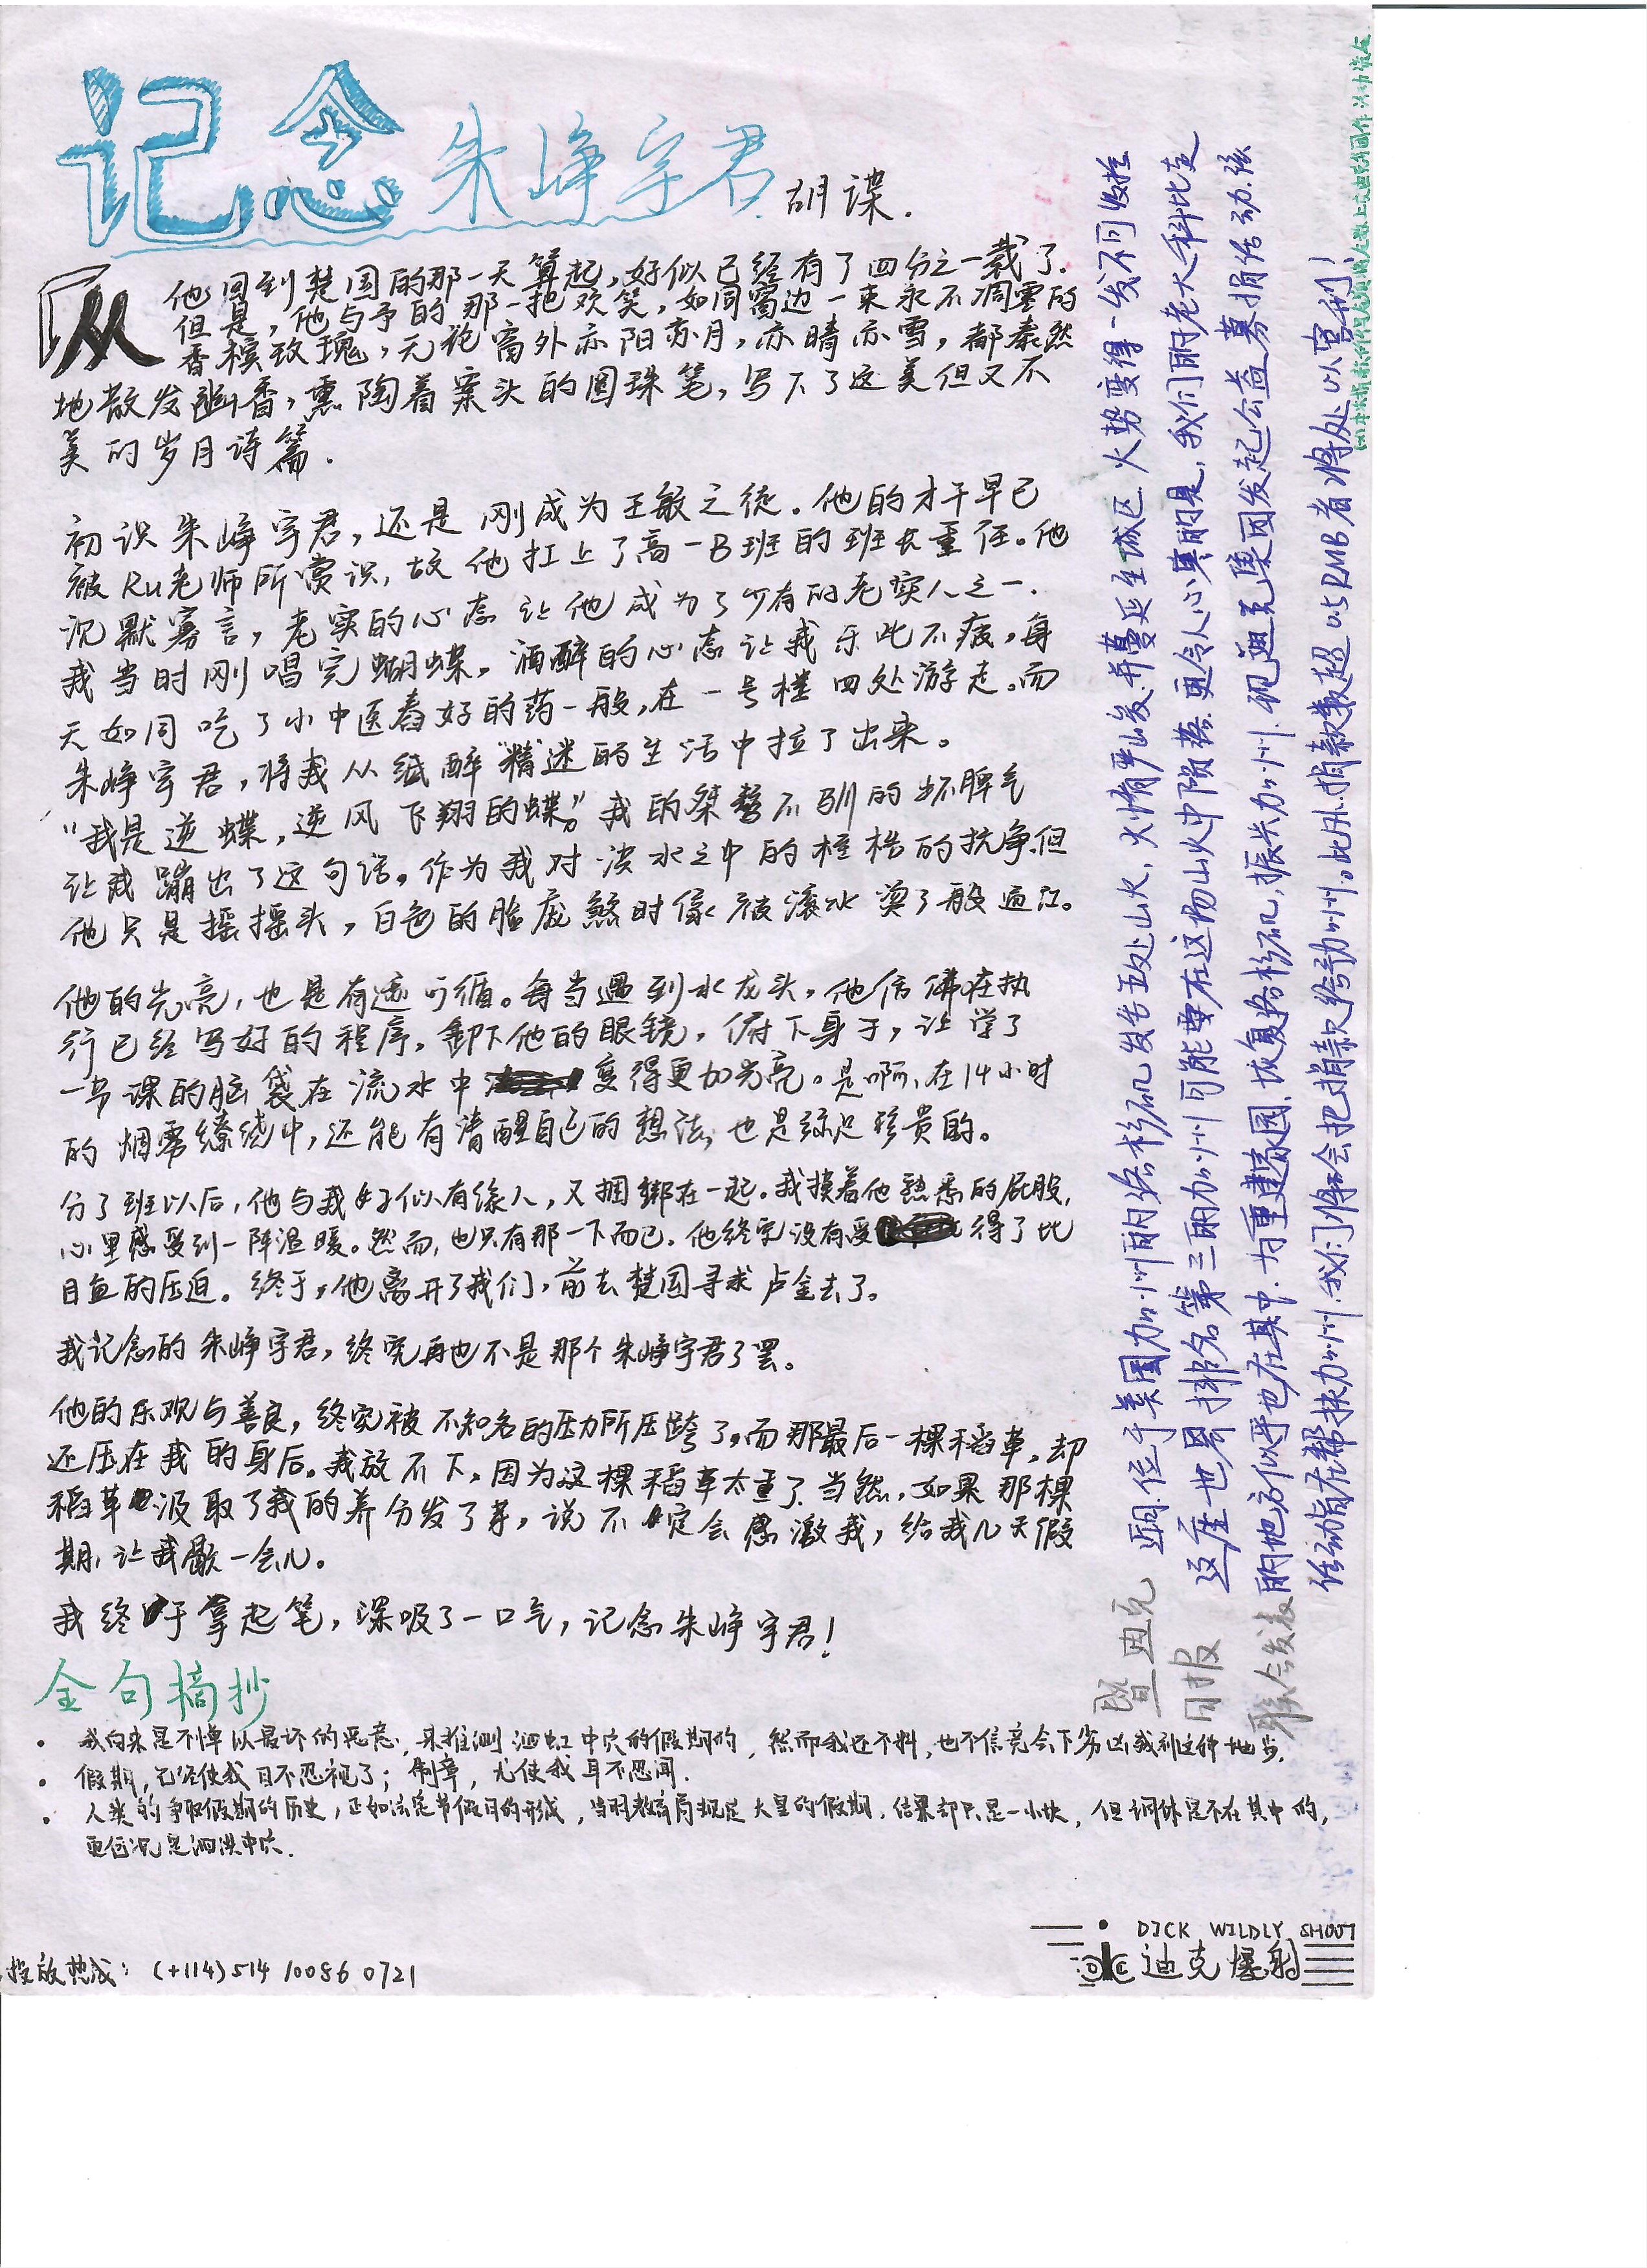 记念朱峥宇君 胡谍.
从他回到楚国的那一天算起,好似已经有了四分之一载了.
但是,他与予的那一把欢笑,如同窗边一束永不凋零的
香槟玫瑰,无论窗外亦阳亦月,亦晴亦雪,都泰然
地散发幽香,熏陶着案头的圆珠笔,写下了这美但又不
美的岁月诗篇.
初识朱峥宇君,还是刚成为王敏之徒.他的才干早已
被Ru老师所赏识,故他扛上了高一B班的班长重任。他
沉默寡言,老实的心态让他成为了少有的老实人之一.
我当时刚唱完蝴蝶,酒醉的心态让我乐此不疲,每
天如同吃了小中医春好的药一般,在一号楼四处游走。而
朱峥宇君,将我从纸醉“精”迷的生活中拉了出来。
“我是逆蝶,逆风飞翔的蝶。”我的桀骜不驯的坏脾气
让我蹦出了这句话。作为我对泱水之中的桎梏的抗争.但
他只是摇摇头,白色的脸庞煞时像被滚水烫了般通红。
他的光亮,也是有迹可循。每当遇到水龙头,他仿佛在执
行已经写好的程序,卸下他的眼镜,俯下身子,让学了
一节课的脑袋在流水中变得更加光亮。是啊,在14小时
的烟雾缭绕中,还能有清醒自己的想法,也是弥足珍贵的。
分了班以后,他与我好似有缘人,又捆绑在一起。我摸着他熟悉的屁股,
心里感受到一阵温暖。然而,也只有那一下而已.他终究没有受得了比
目鱼的压迫。终于,他离开了我们,前去楚国寻求卢金去了。
我记念的朱峥宇君,终究再也不是那个朱峥宇君了罢。
他的乐观与善良,终究被不知名的压力所压跨了,而那最后一棵稻草,却
还压在我的身后。我放不下,因为这棵稻草太重了.当然,如果那棵
稻草汲取了我的养分发了芽,说不定会感激我,给我几天假
期,让我歇一会儿。
我终于拿起笔,深吸了一口气,记念朱峥宇君!
金句摘抄
· 我向来是不惮以最坏的恶意,来推测泗虹中穴的假期的,然而我还不料,也不信竟会下劣凶残到这种地步.
· 假期,已经使我目不忍视了;制章,尤使我耳不忍闻.
· 人类的争取假期的历史,正如法定节假日的形成,当时教育局规定大量的假期,结果却只是一小块,但调休是不在其中的,
更何况是泗洪中穴.
投放热线:(+114)514 10086 0721
DICK WILDLY SHOOT
迪克爆射
暨迪克
日报
联合发表
位于美国加州的洛杉矶发生五处山火,火情严峻,并蔓延至城区.火势变得一发不可收拾
这座世界排名第三的加州可能要在这场山火中陨落.更令人心寒的是,我们的老大科比走
的地方似乎也在其中.为重建家园,恢复洛杉矶,振兴加州.现迪克集团发起公益募捐活动.该
活动旨在帮扶加州.我们将会把捐款给予加州。此外.捐款数超0.5RMB者将处以宫刑!